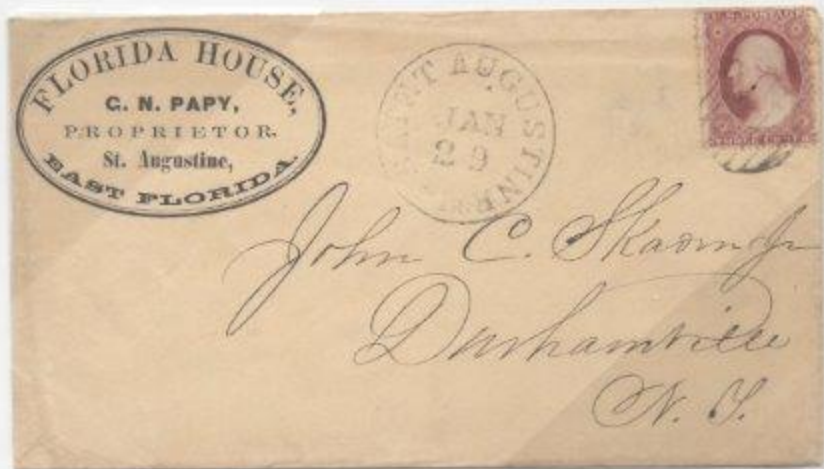 FLORIDA HOUSE,
G. N. PAPY,
PROPRIETOR.
St. Augustine,
EAST FLORIDA.
SAINT AUGUSTINE
JAN
29
John C.
Durhamville
N. Y.